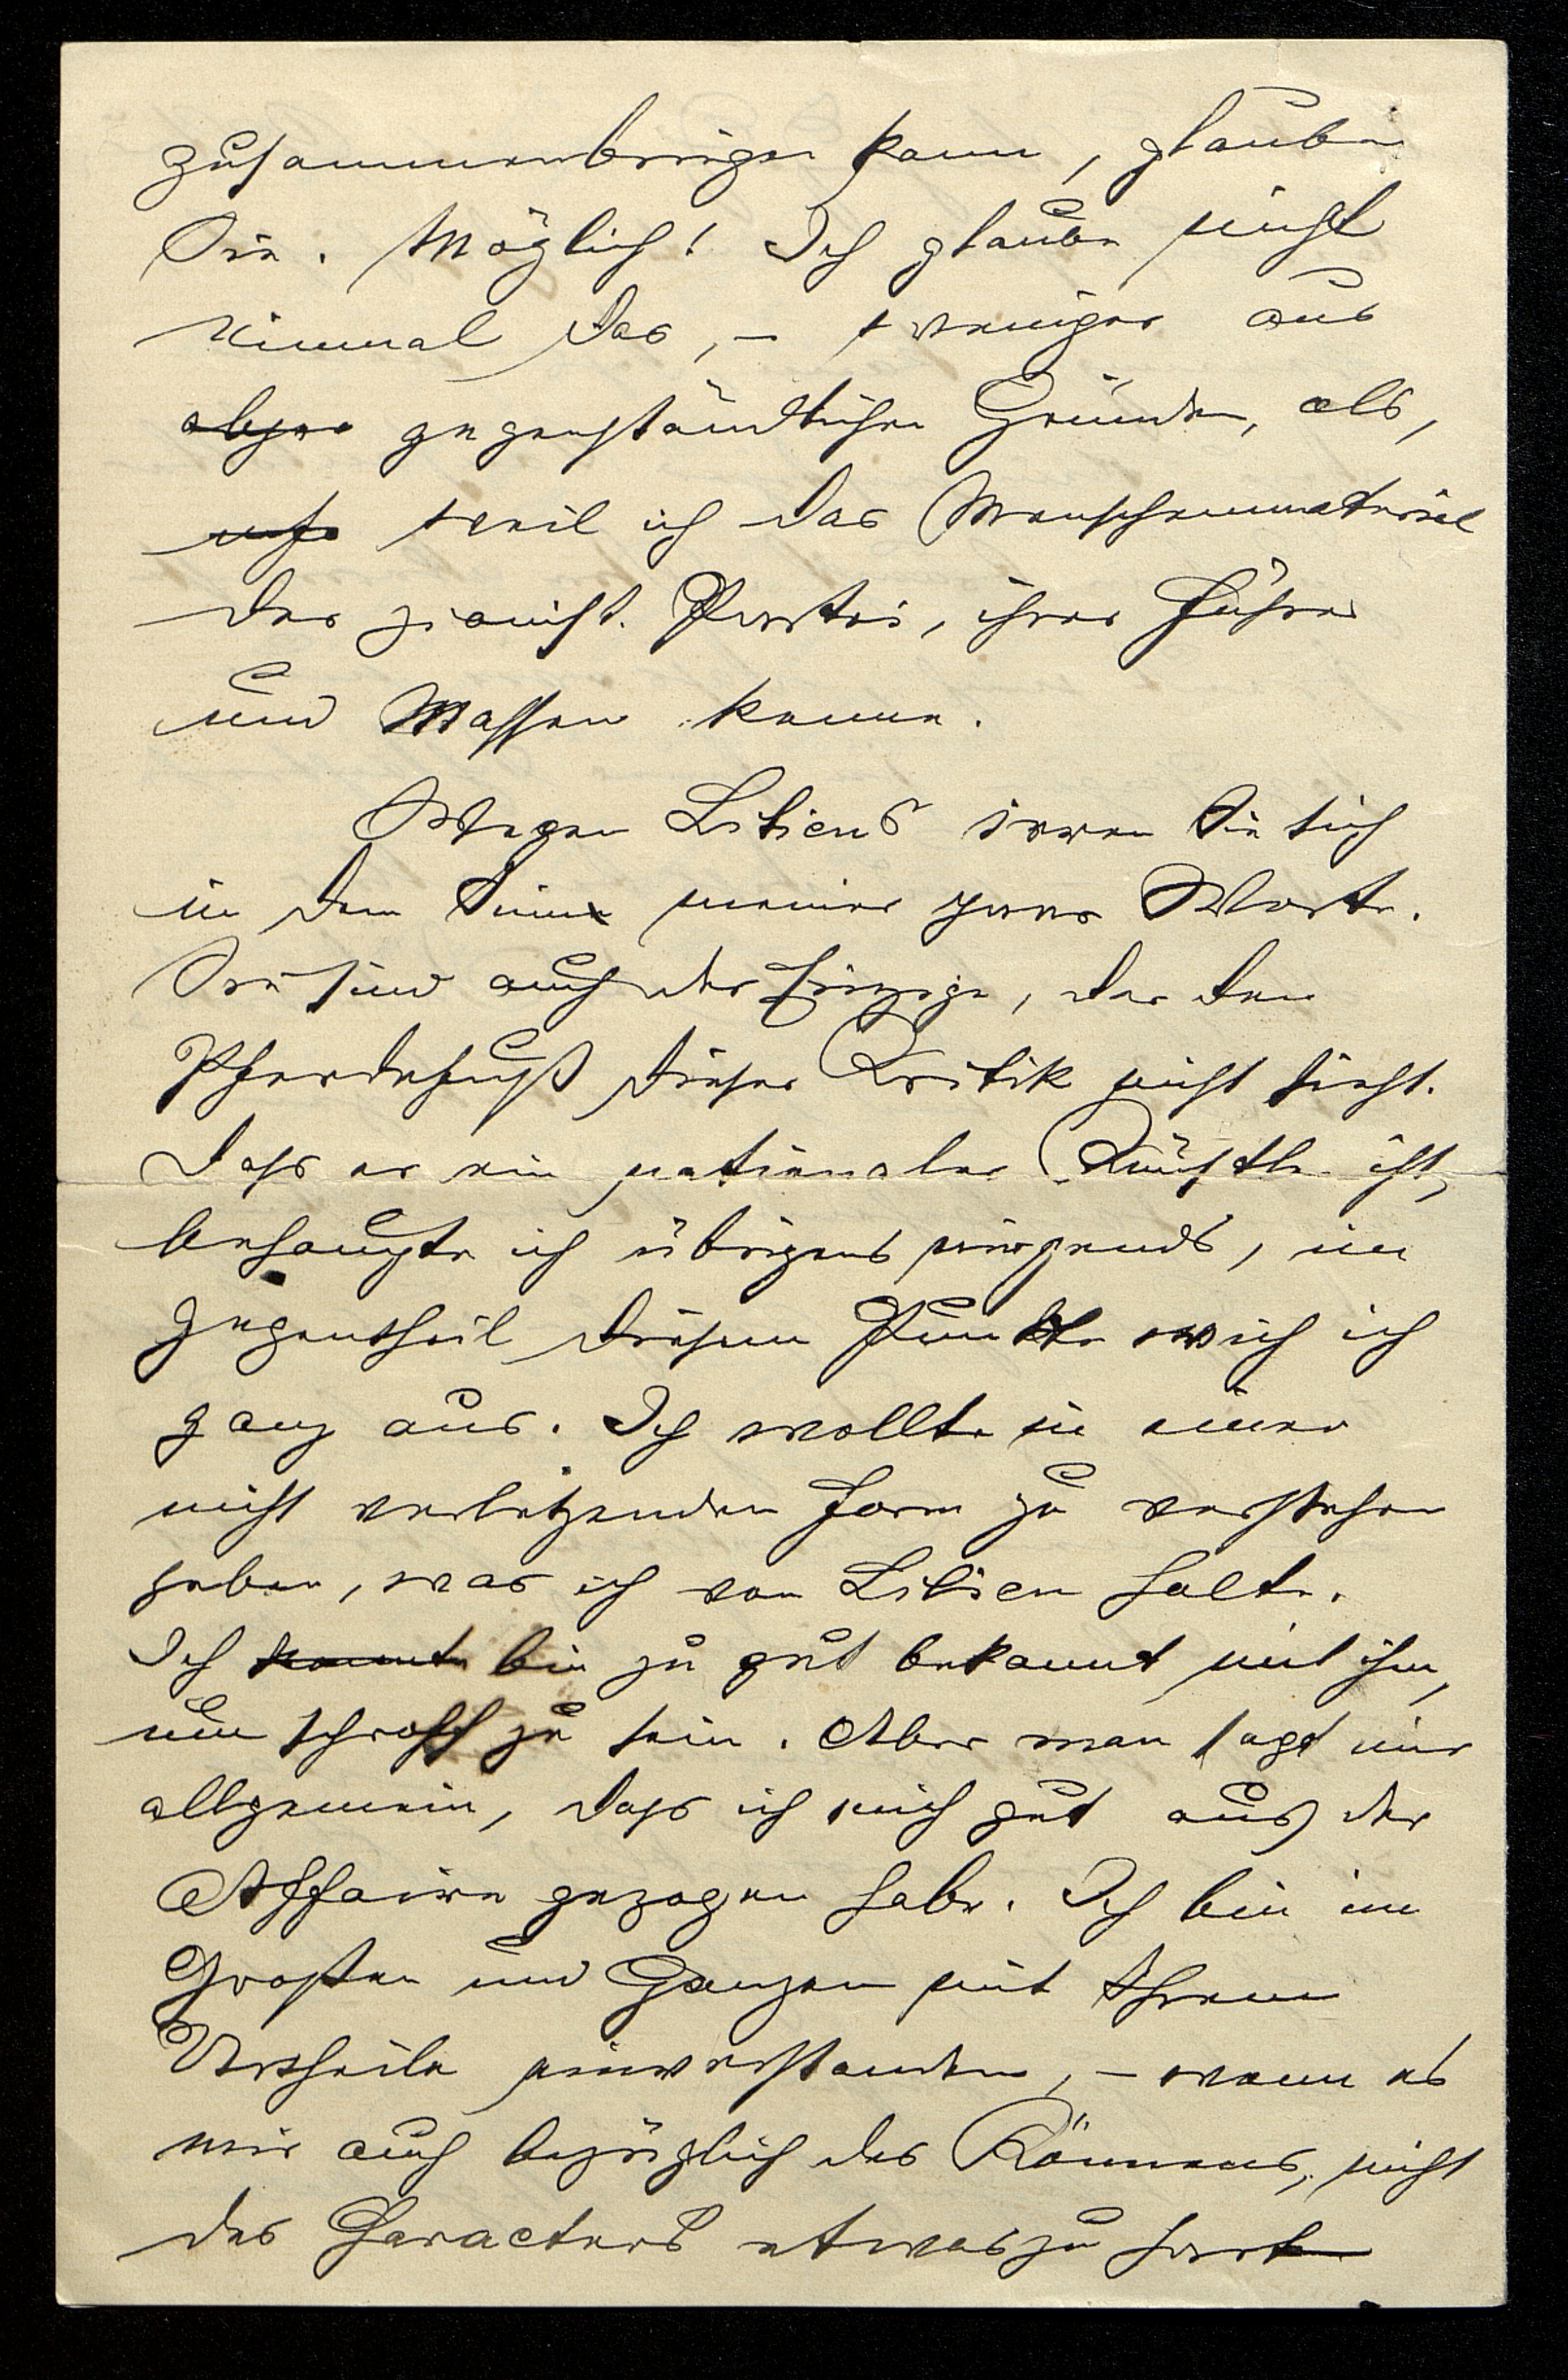 zusammenbringen kann, glauben
Sie. Möglich! Ich glaube nicht
einmal das, – weniger aus
gegenständlichen Gründen, als,
weil ich das Menschenmaterial
der zionist. Partei, ihrer Führer
und Massen kenne.
Wegen Liliens irren Sie sich
in dem Sinne meiner Worte.
Sie sind auch der Einzige, der den
Pferdefuß dieser Kritik nicht sieht.
Dass er ein nationaler Künstler ist,
behaupte ich übrigens nirgends, im
Gegentheil diesem Punkte wich ich
ganz aus. Ich wollte in einer
nicht verletzenden Form zu verstehen
geben, was ich von Lilien halte.
Ich konnte bin zu gut bekannt mit ihm,
um schroff zu sein. Aber man sagt mir
allgemein, dass ich mich gut aus der
Affaire gezogen habe. Ich bin im
Großen und Ganzen mit Ihrem
Urtheile einverstanden, – wenn es
mir auch bezüglich des Könnens, nicht
des Characters etwas zu hart